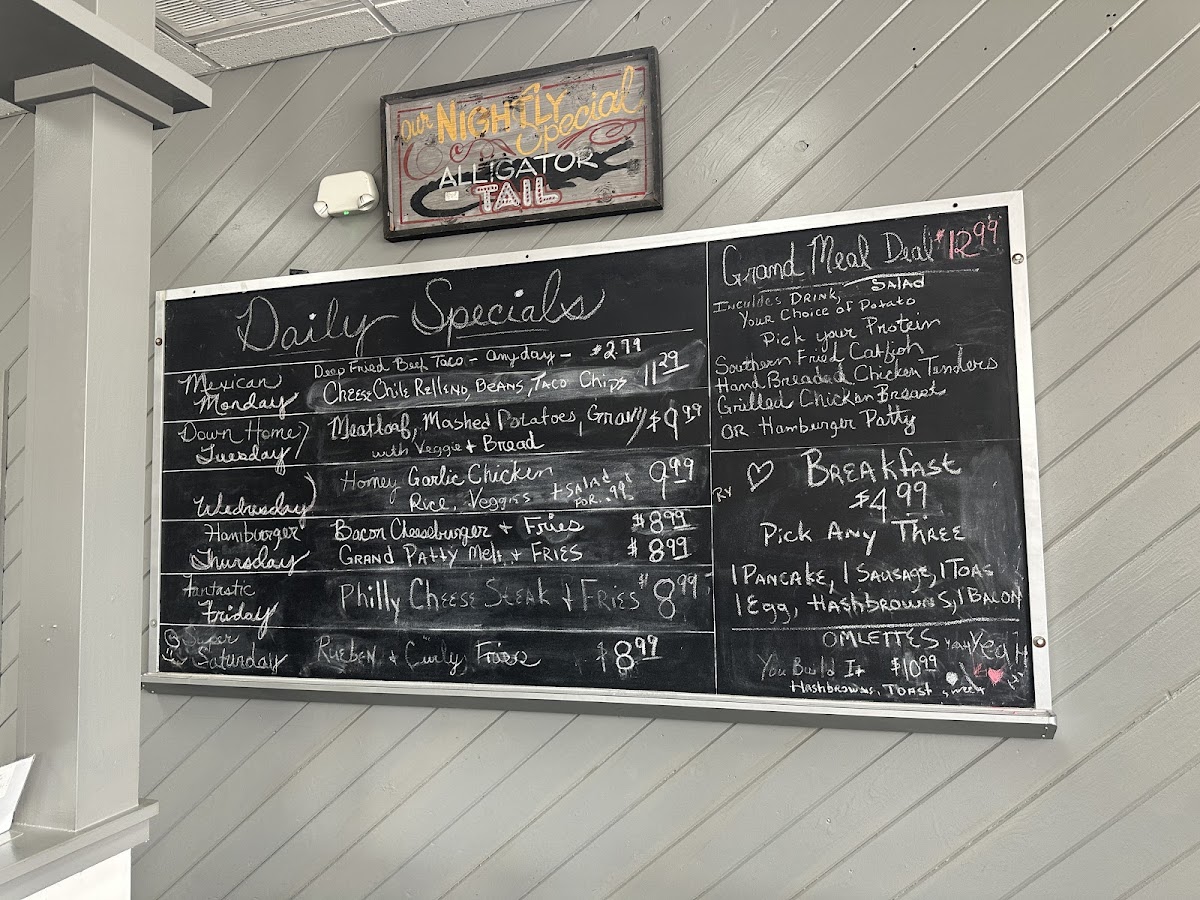 Our NIGHTLY Special
ALLIGATOR
TAIL
Daily Specials
Deep Fried Beef Taco - anyday - $2.79
Mexican Monday
Cheese Chile Relleno, Beans, Taco Chips 11.29
Down Home Tuesday
Meatloaf, Mashed Potatoes, Gravy $9.99
with Veggie + Bread
Wednesday
Honey Garlic Chicken 9.99
Rice, Veggies + Salad
For .99¢
Hamburger Thursday
Bacon Cheeseburger + Fries $8.99
Grand Patty Melt + Fries $8.99
Fantastic Friday
Philly Cheese Steak + Fries $8.99
Super Saturday
Rueben + Curly Fries $8.99
Grand Meal Deal $12.99
Inculdes Drink, Salad
Your Choice of Potato
Pick your Protein
Southern Fried Catfish
Hand Breaded Chicken Tenders
Grilled Chicken Breast
OR Hamburger Patty
RV
Breakfast
$4.99
Pick Any Three
1 Pancake, 1 Sausage, 1 Toas
1 Egg, Hashbrowns, 1 Bacon
OMLETTES Yeah
You Build It $10.99
Hashbrowns, Toast